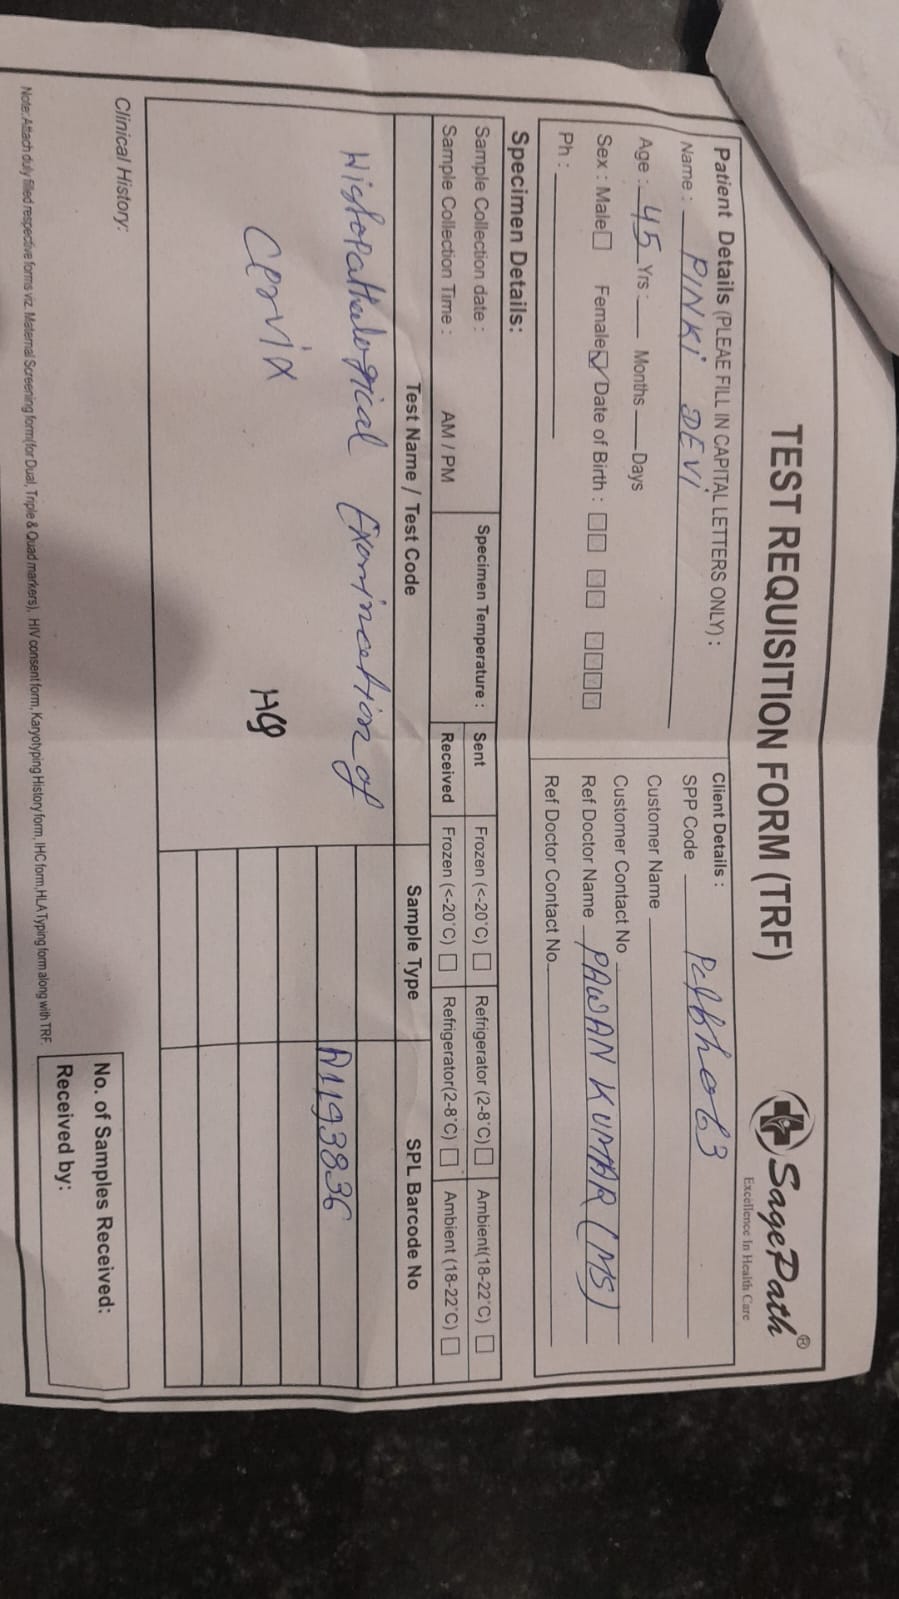 TEST REQUISITION FORM (TRF)
SagePath®
Excellence In Health Care
Patient Details (PLEAE FILL IN CAPITAL LETTERS ONLY) :
Name : PINKi DEVI
Age : 45 Yrs : Months Days
Sex : Male Female Date of Birth : Y Y Y Y
Ph :
Client Details :
SPP Code
Customer Name
Customer Contact No
Ref Doctor Name PAWAN KUMAR (MS)
Ref Doctor Contact No.
Specimen Details:
Sample Collection date :
Sample Collection Time : AM / PM
Specimen Temperature :
Sent Frozen (<-20°C) Refrigerator (2-8°C) Ambient(18-22°C)
Received Frozen (<-20°C) Refrigerator(2-8°C) Ambient (18-22°C)
Test Name / Test Code Sample Type SPL Barcode No
Histopathological Examination of
A1193836
Cervix
Clinical History:
No. of Samples Received:
Received by:
Note: Attach duly filled respective forms viz. Maternal Screening form(for Dual, Triple & Quad markers), HIV consent form, Karyotyping History form, IHC form, HLA Typing form along with TRF.